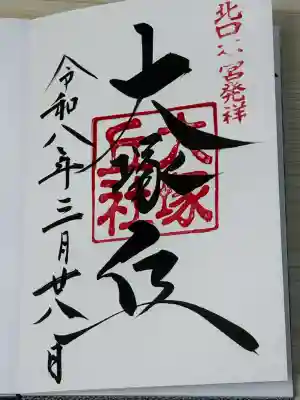 北口本宮発祥
大塚丘
大塚
丘社
令和八年三月廿八日